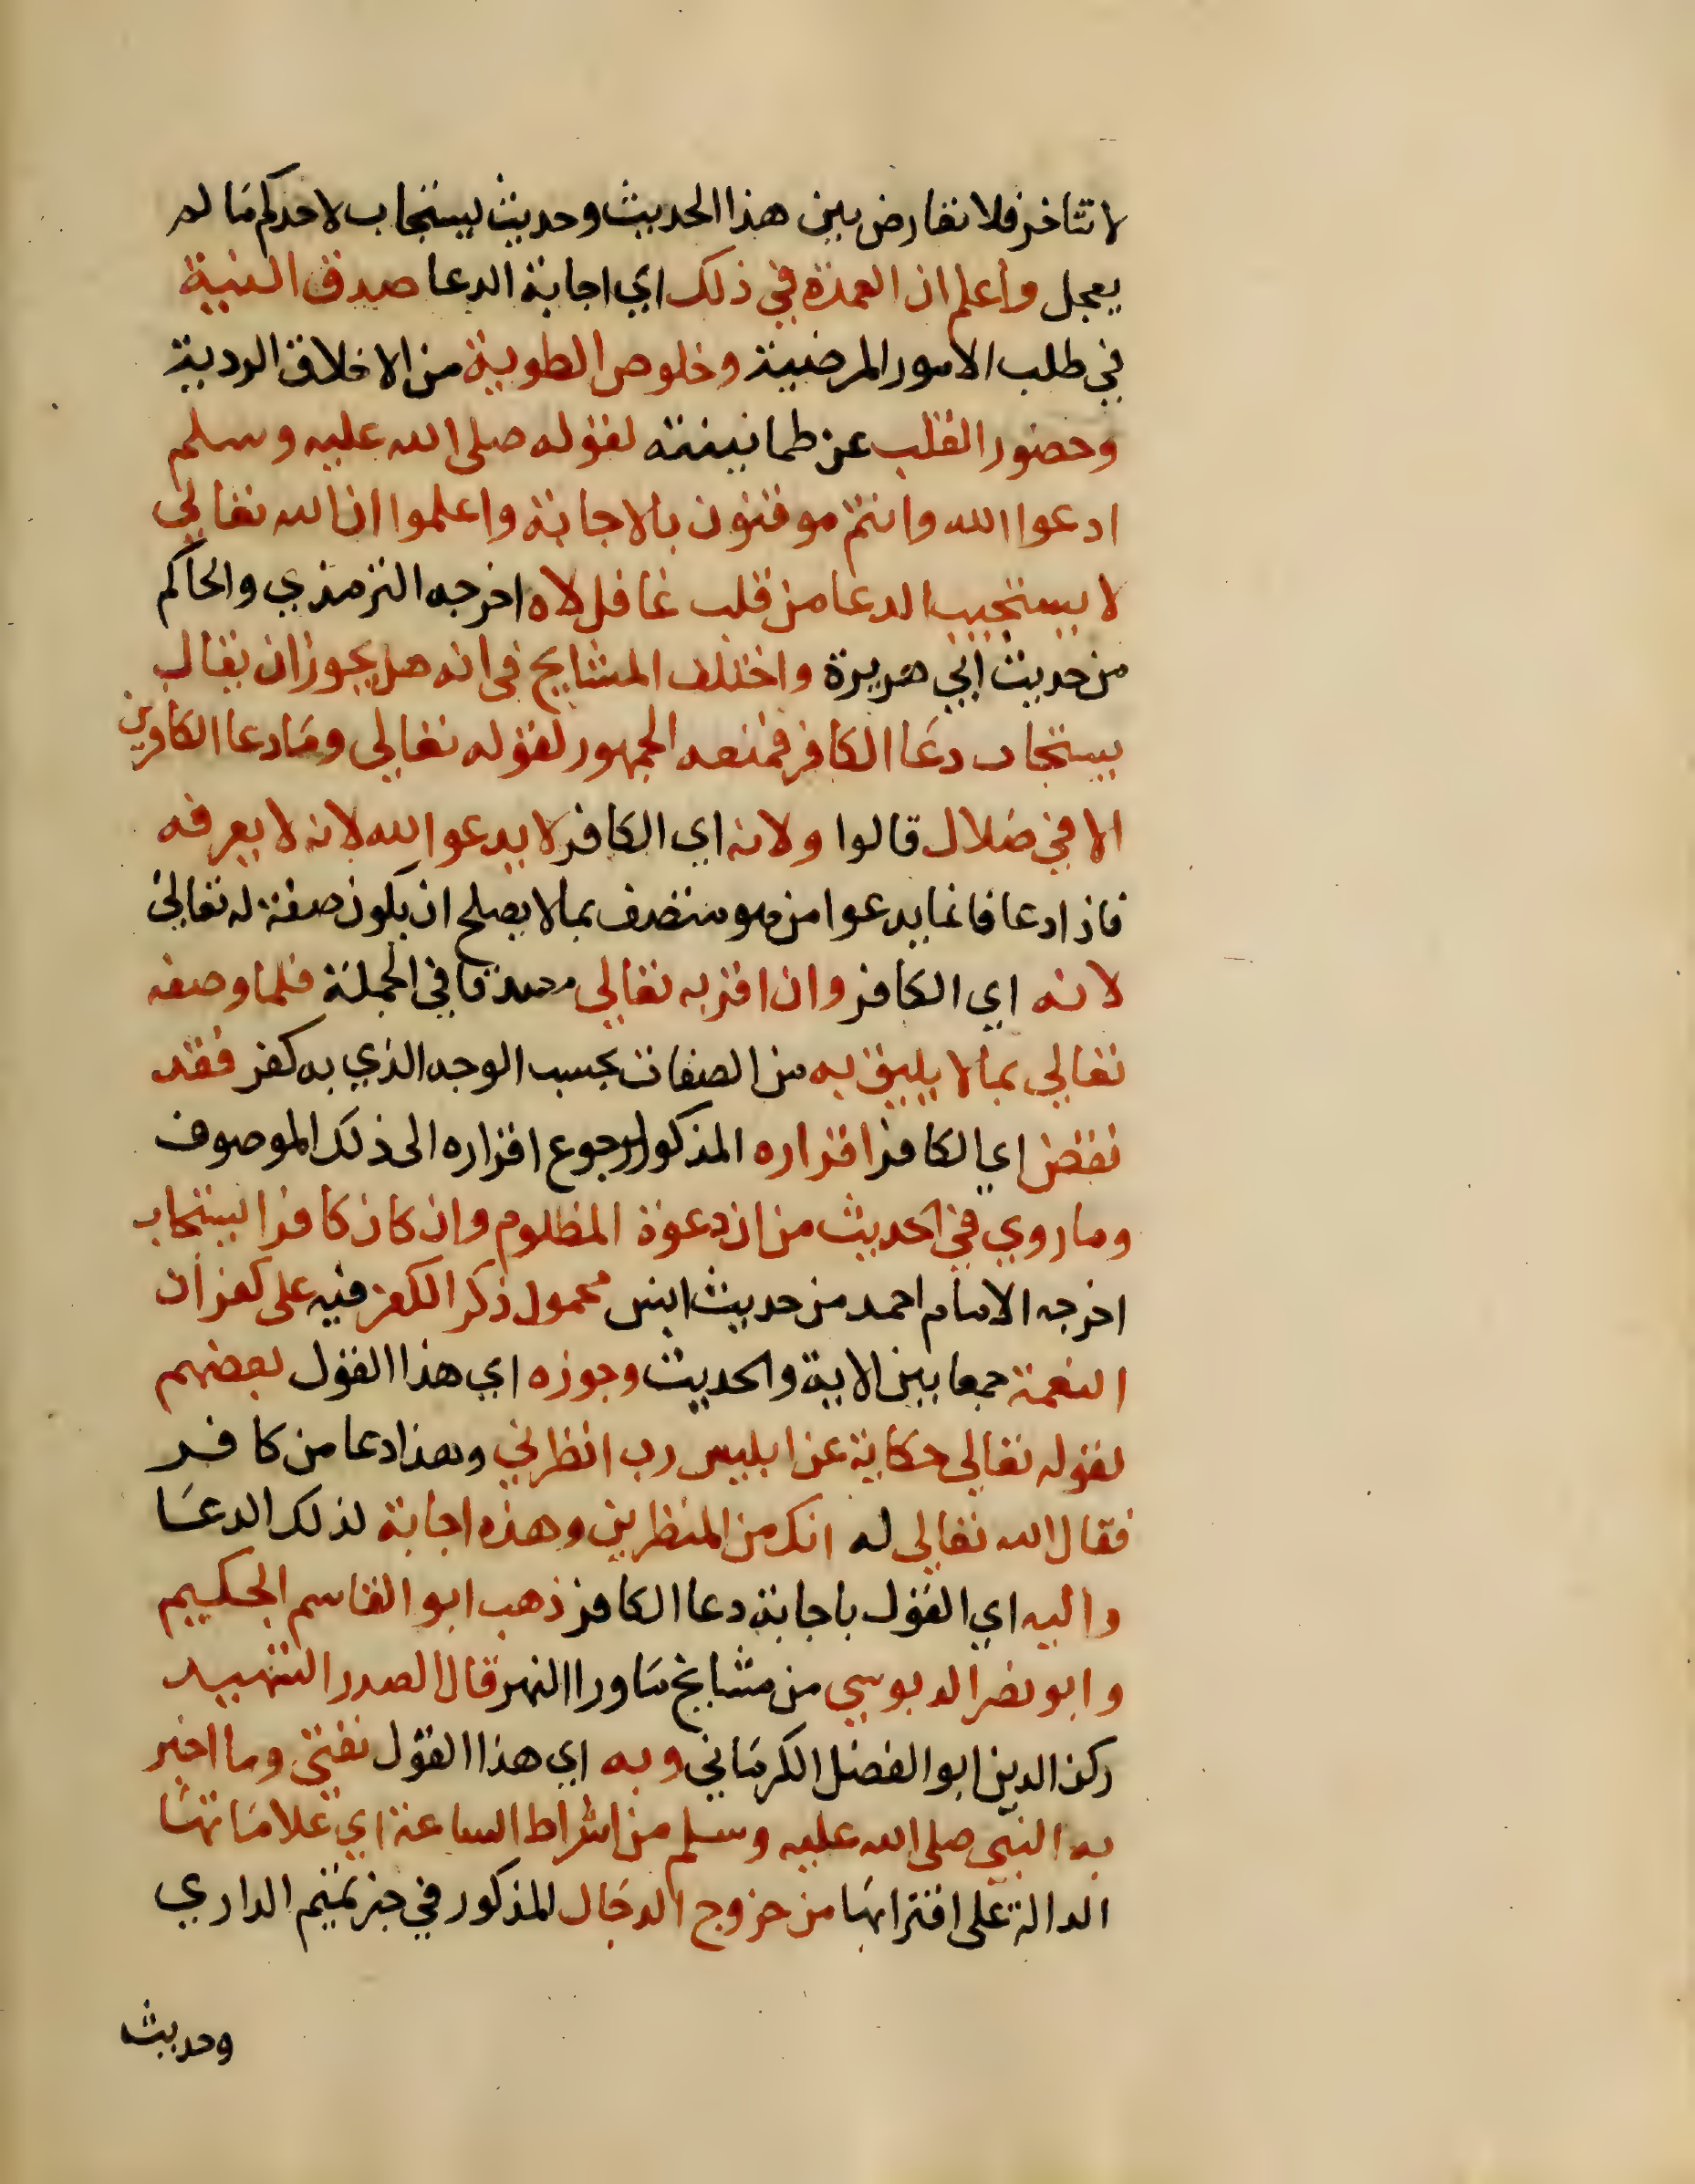 لا تتاخر فلا تعارض بين هذا الحديث وحديث يستجاب لاحدكم ما لم
يعجل واعلم ان العمدة في ذلك اي اجابة الدعا صدق النية
في طلب الامور المرضية وخلوص الطوية من الاخلاق الردية
وحضور القلب عن طمانينته لقوله صلى الله عليه وسلم
ادعوا الله وانتم موقنون بالاجابة واعلموا ان الله تعالي
لا يستجيب الدعا من قلب غافل لاه اخرجه الترمذي والحاكم
من حديث ابي هريرة واختلف المشايخ في انه هل يجوز ان يقال
يستجاب دعا الكافر فمنعه الجمهور لقوله تعالي وما دعا الكافرين
الا في ضلال قالوا ولانه اي الكافر لا يدعوا الله لانه لا يعرفه
فاذا دعا فانما يدعوا من هو متصف بما لا يصلح ان يكون صفة له تعالي
لانه اي الكافر وان اقر به تعالي مصدقا في الجملة فلما وصفه
تعالي بما لا يليق به من الصفات بحسب الوجه الذي به كفر فقد
نقض اي الكافر اقراره المذكور لرجوع اقراره الى ذلك الموصوف
وما روي في الحديث من ان دعوة المظلوم وان كان كافرا ليستجاب
اخرجه الامام احمد من حديث انس محمول ذكر الكفر فيه على كفران
النعمة جمعا بين الاية والحديث وجوزه اي هذا القول بعضهم
لقوله تعالي حكاية عن ابليس رب انظرني وهذا دعا من كافر
فقال الله تعالي له انك من المنظرين وهذه اجابة لذلك الدعا
واليه اي القول باجابة دعا الكافر ذهب ابو القاسم الحكيم
وابو نصر الدبوسي من مشايخ ماورا النهر قال الصدر الشهيد
ركن الدين ابو الفضل الكرماني وبه اي هذا القول نفتي وما اخبر
به النبي صلى الله عليه وسلم من اشراط الساعة اي علاماتها
الدالة على اقترابها من خروج الدجال المذكور في خبر تميم الداري
وحديث